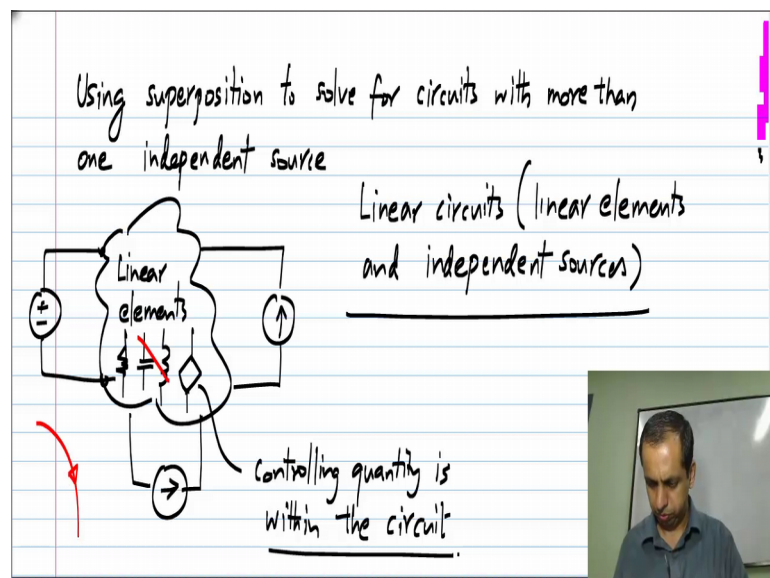 Using superposition to solve for circuits with more than
one independent source
Linear circuits (linear elements
and independent sources)
Linear
elements
controlling quantity is
within the circuit.